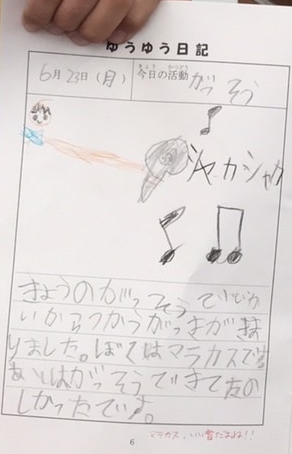 ゆうゆう日記
6月23日(月) 今日の活動 がっそう
きょう かつどう
シャカシャカ
きょうのがっそうで
いからつかうがっきがきま
りました。ぼくはマラカスです。
がっそうできてたの
しかったです。
マラカス、いい音だよね!!
6